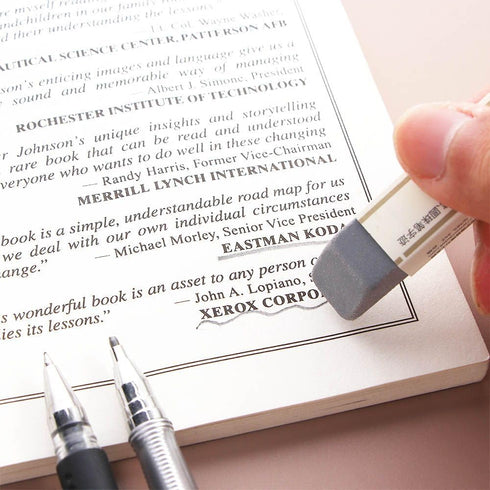 er myself reading
and children in our family have
d their understanding of the lessons."
— Lt. Col. Wayne Washer,
AUTICAL SCIENCE CENTER, PATTERSON AFB
son's enticing images and language give us a
sound and memorable way of managing
— Albert J. Simone, President
ROCHESTER INSTITUTE OF TECHNOLOGY
r Johnson's unique insights and storytelling
rare book that can be read and understood
everyone who wants to do well in these changing
— Randy Harris, Former Vice-Chairman
MERRILL LYNCH INTERNATIONAL
book is a simple, understandable road map for us
we deal with our own individual circumstances
ange."
— Michael Morley, Senior Vice President
EASTMAN KODA
s wonderful book is an asset to any person
ies its lessons."
— John A. Lopiano, S
XEROX CORPO